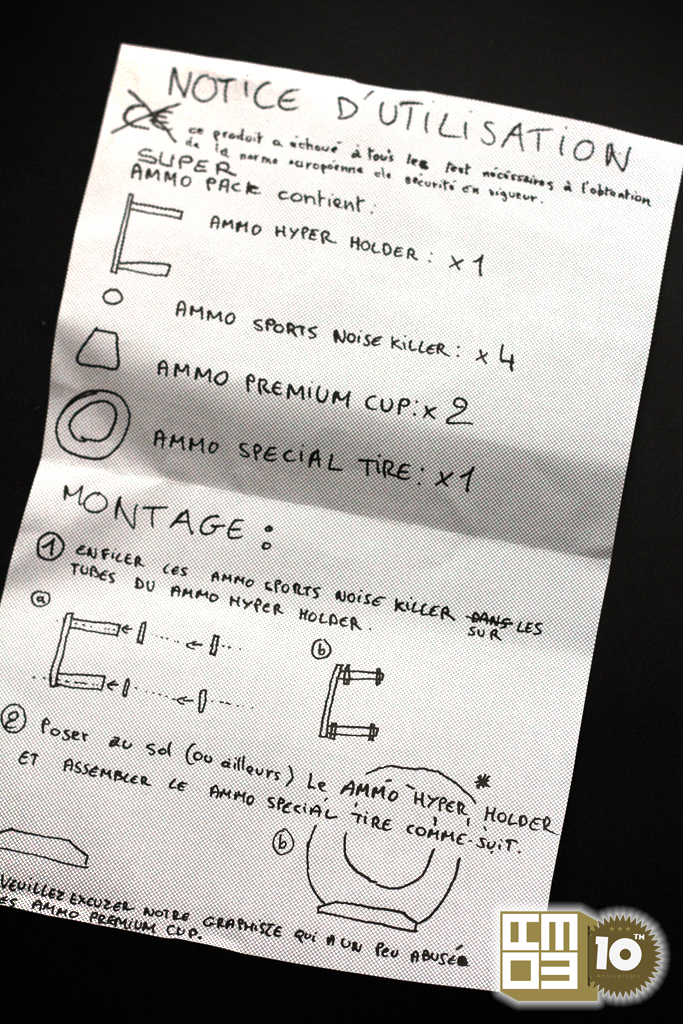 NOTICE D'UTILISATION
CE ce produit a échoué à tous les test nécessaires à l'obtention
de la norme européenne de sécurité en vigueur.
SUPER
AMMO PACK contient:
AMMO HYPER HOLDER: x1
AMMO SPORTS NOISE KILLER: x4
AMMO PREMIUM CUP: x2
AMMO SPECIAL TIRE: x1
MONTAGE:
1 ENFILER LES AMMO SPORTS NOISE KILLER DANS LES
SUR
TUBES DU AMMO HYPER HOLDER.
a
b
2 Poser au sol (ou ailleurs) Le AMMO HYPER HOLDER
ET ASSEMBLER LE AMMO SPECIAL TIRE COMME SUIT.
*
b
VEUILLEZ EXCUZER NOTRE GRAPHISTE QUI A UN PEU ABUSÉ
ES AMMO PREMIUM CUP.
AMMO
10TH
Anniversary